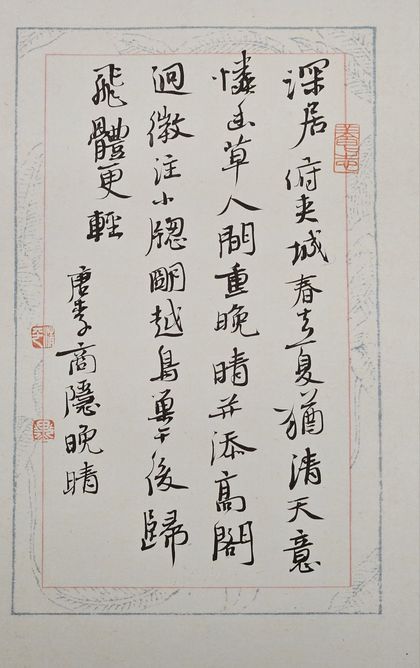 深居俯夾城春去夏猶清天意
憐幽草人間重晚晴并添高閣
迥微注小牕朙越鳥巢干後歸
飛體更輕
唐李商隱晚晴